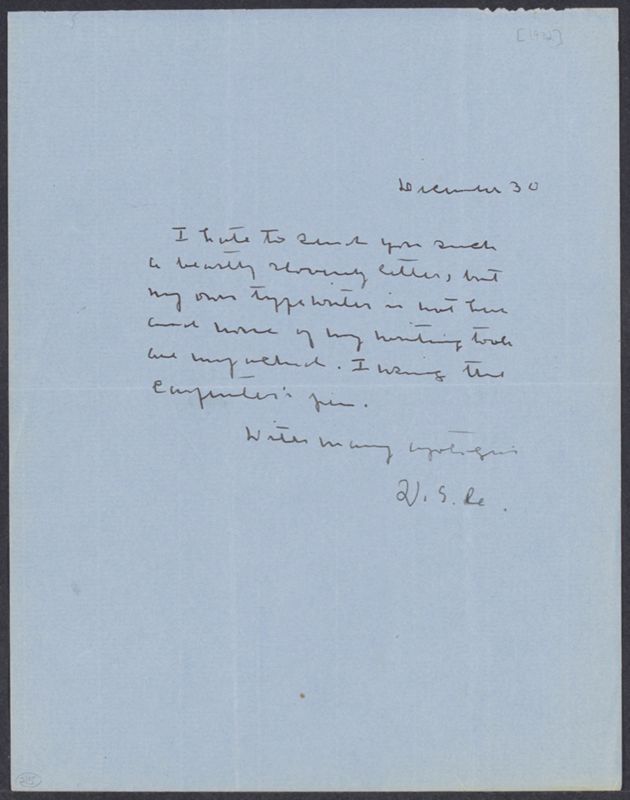 [1932]
December 30
I hate to send you such
a beastly slovenly letter, but
my own typewriter is not here
and none of my writing tools
are my actual. I using the
Carpenter's pen.
With many apologies
V. S.
215